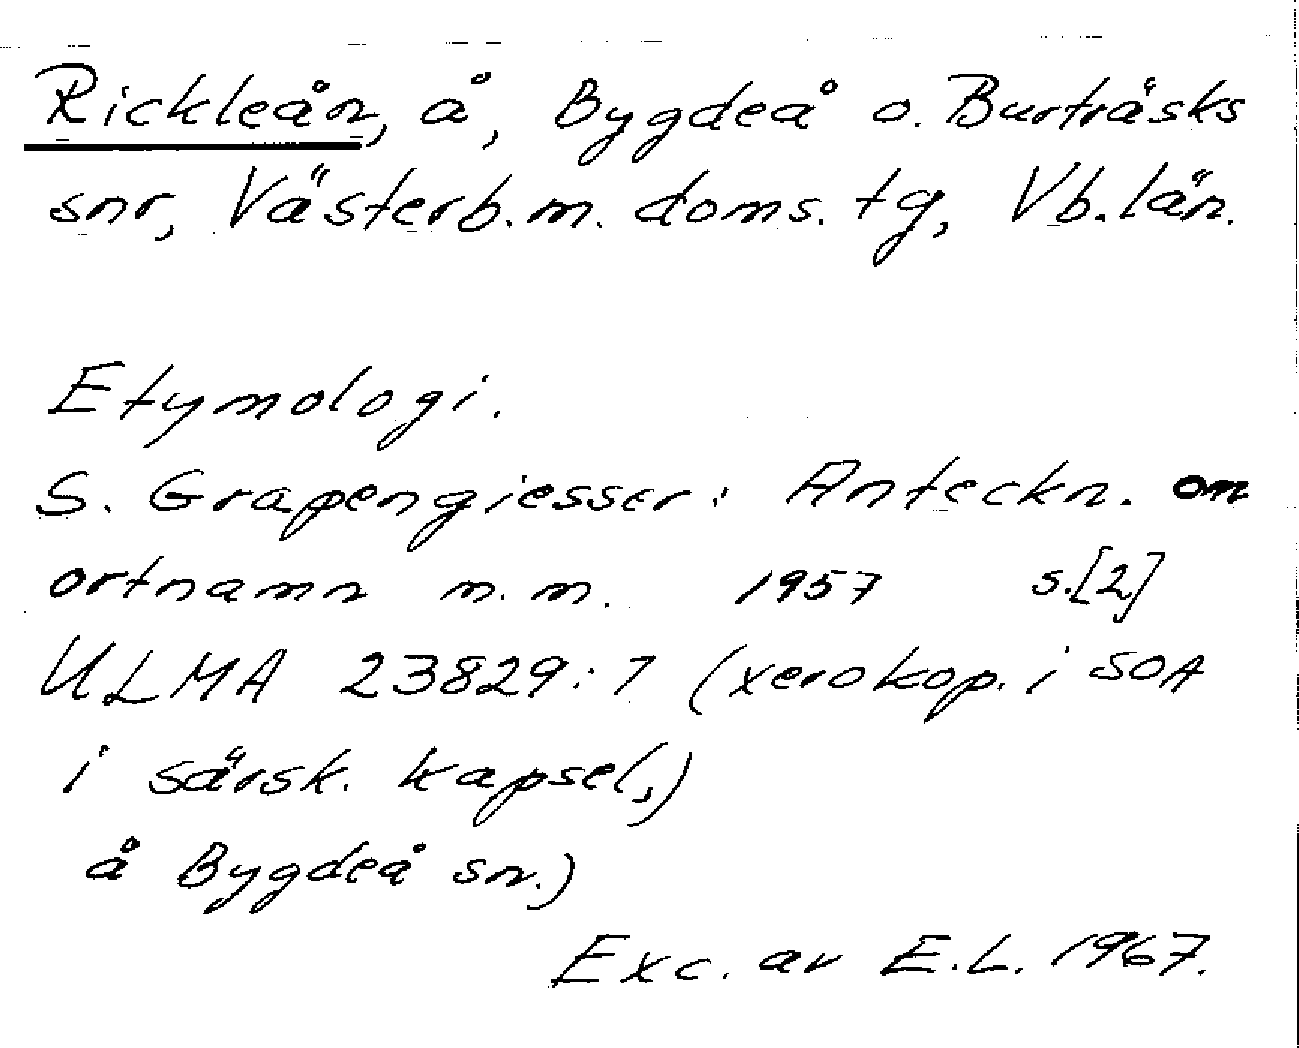 Rickleån, å, Bygdeå o. Burträsks
snr, Västerb.m. doms. tg, Vb. län.
Etymologi.
S. Grapengiesser: Anteckn. om
ortnamn m.m. 1957 s.[2]
ULMA 23829:7 (xerokop. i SOA
i särsk. kapsel,)
å Bygdeå sn.)
Exc. av E.L. 1967.